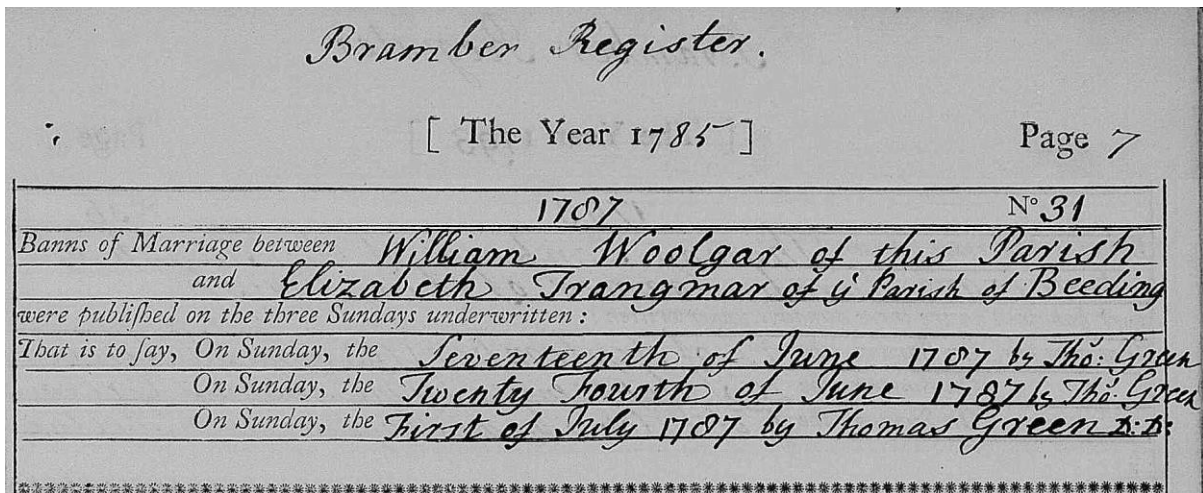 Bramber Register.
[ The Year 1785 ] Page 7
1787 No 31
Banns of Marriage between William Woolgar of this Parish
and Elizabeth Trangmar of ẙ Parish of Beeding
were publiſhed on the three Sundays underwritten :
That is to ſay, On Sunday, the Seventeenth of June 1787 by Thos: Green
On Sunday, the Twenty Fourth of June 1787 by Thos: Green
On Sunday, the First of July 1787 by Thomas Green D:D: